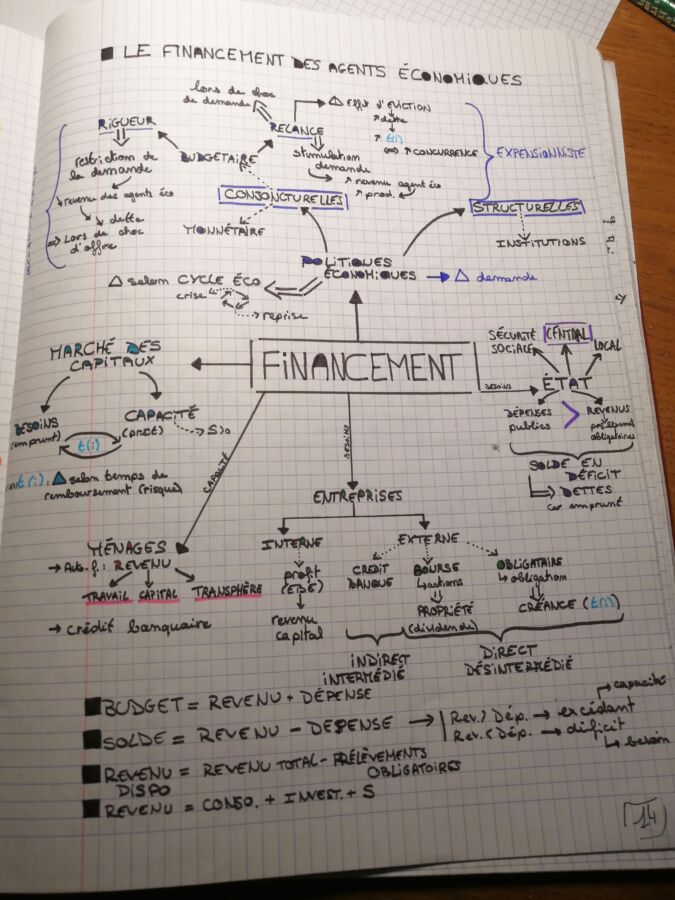 LE FINANCEMENT DES AGENTS ÉCONOMIQUES
lors de choc
de demande
△ effet d'ÉVICTION
↗ dette
↗ t(i)
⇔ ↗ CONCURRENCE
RIGUEUR
RELANCE
restriction de
la demande
BUDGETAIRE
stimulation
demande
EXPENSIONNISTE
↘ revenu des agents éco
↗ revenu agent éco
↗ prod.
↘ dette
⇒ Lors de choc
d'offre
CONJONCTURELLES
STRUCTURELLES
MONNÉTAIRE
INSTITUTIONS
POLITIQUES
ÉCONOMIQUES → △ demande
△ selon CYCLE ÉCO
crise
reprise
MARCHÉ DES
CAPITAUX
FINANCEMENT
SÉCURITÉ
SOCIALE
CENTRAL
LOCAL
BESOINS
ÉTAT
BESOINS
(emprunt)
CAPACITÉ
(prêt)
S>0
t(i)
DÉPENSES
publics
>
REVENUS
prélèvement
obligatoires
t(i). △ selon temps de
remboursement (risque)
SOLDE EN
DÉFICIT
DETTES
car emprunt
CAPACITÉ
BESOINS
ENTREPRISES
MÉNAGES
→ Auto.f: REVENU
TRAVAIL CAPITAL TRANSPHÈRE
→ crédit banquaire
INTERNE
profit
(EBE)
revenu
capital
EXTERNE
CREDIT
BANQUE
BOURSE
↳ actions
PROPRIÉTÉ
(dividende)
OBLIGATAIRE
↳ obligation
CRÉANCE (t(i))
INDIRECT
INTERMÉDIÉ
DIRECT
DÉSINTERMÉDIÉ
BUDGET = REVENU + DÉPENSE
SOLDE = REVENU - DEPENSE → Rev.> Dép. → excédant → capacité
Rev.< Dép. → déficit ↳ besoin
REVENU = REVENU TOTAL - PRÉLÈVEMENTS
DISPO OBLIGATOIRES
REVENU = CONSO. + INVEST. + S
14